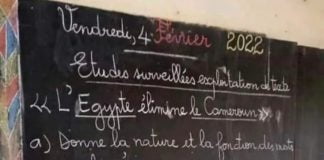 Vendredi, 4 Février 2022
Etudes surveillées exploitation de texte
« L'Egypte élimine le Cameroun »
a) Donne la nature et la fonction des mots